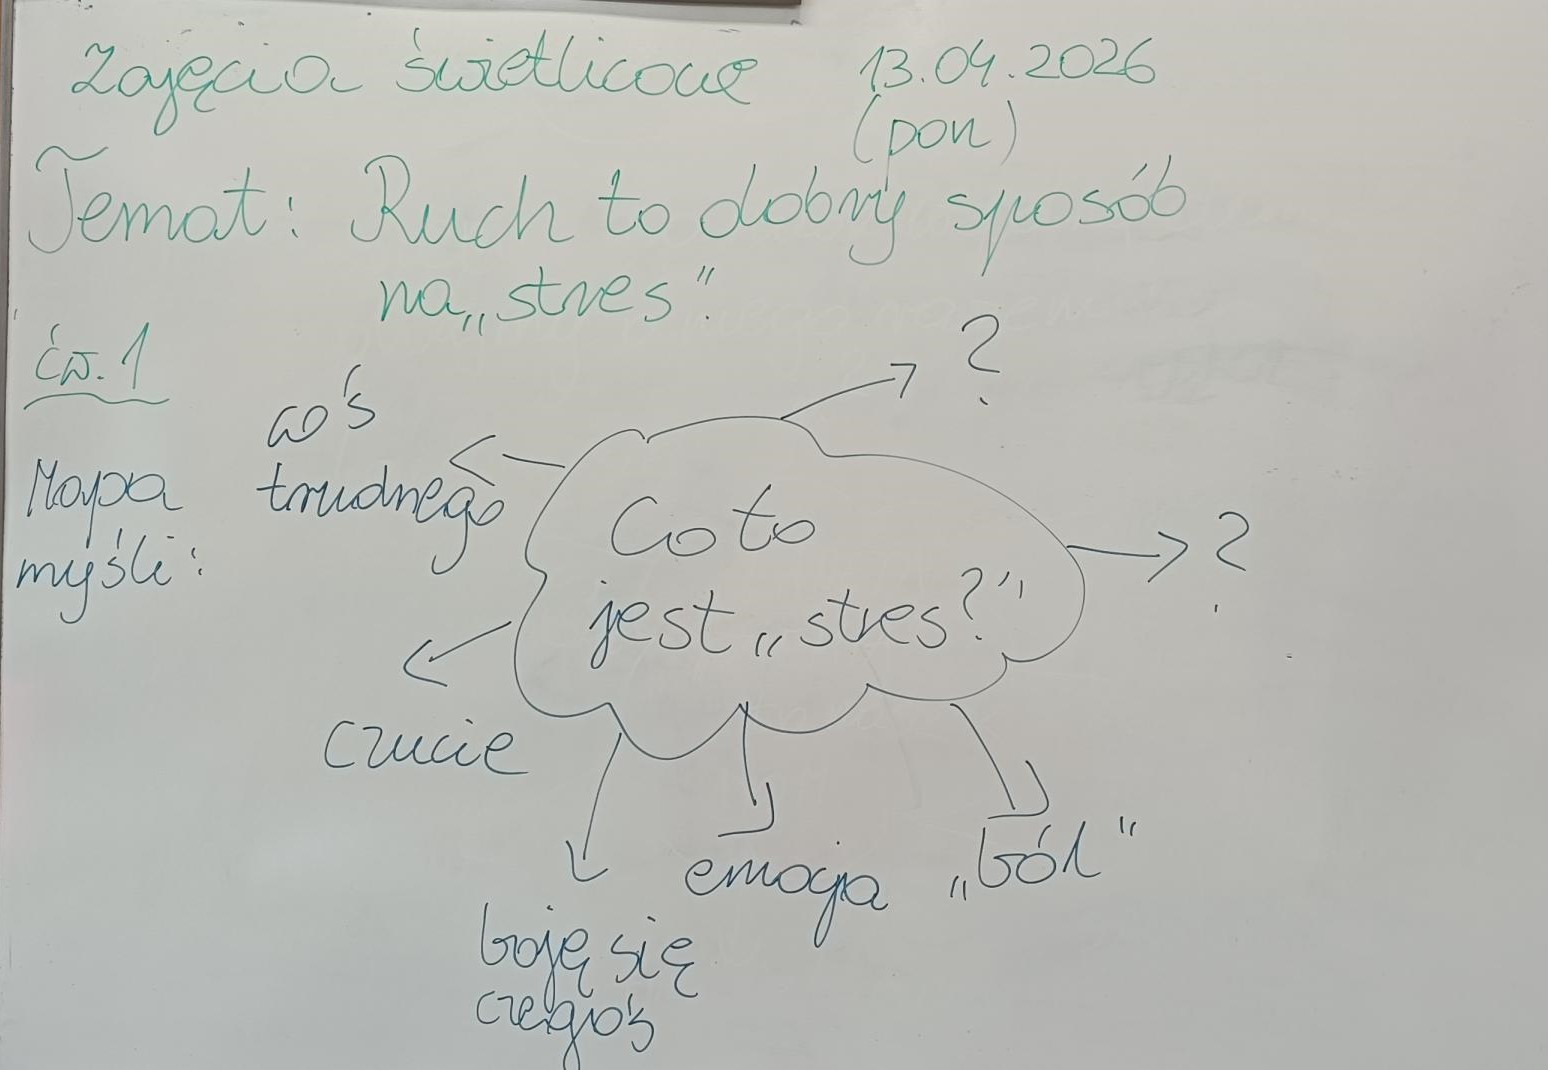 Zajęcia świetlicowe 13.04.2026
(pon)
Temat: Ruch to dobry sposób
na „stres”.
ćw. 1
Mapa
myśli:
coś
trudnego
?
?
Co to
jest „stres?”
czucie
boję się
czegoś
emocja
„ból”